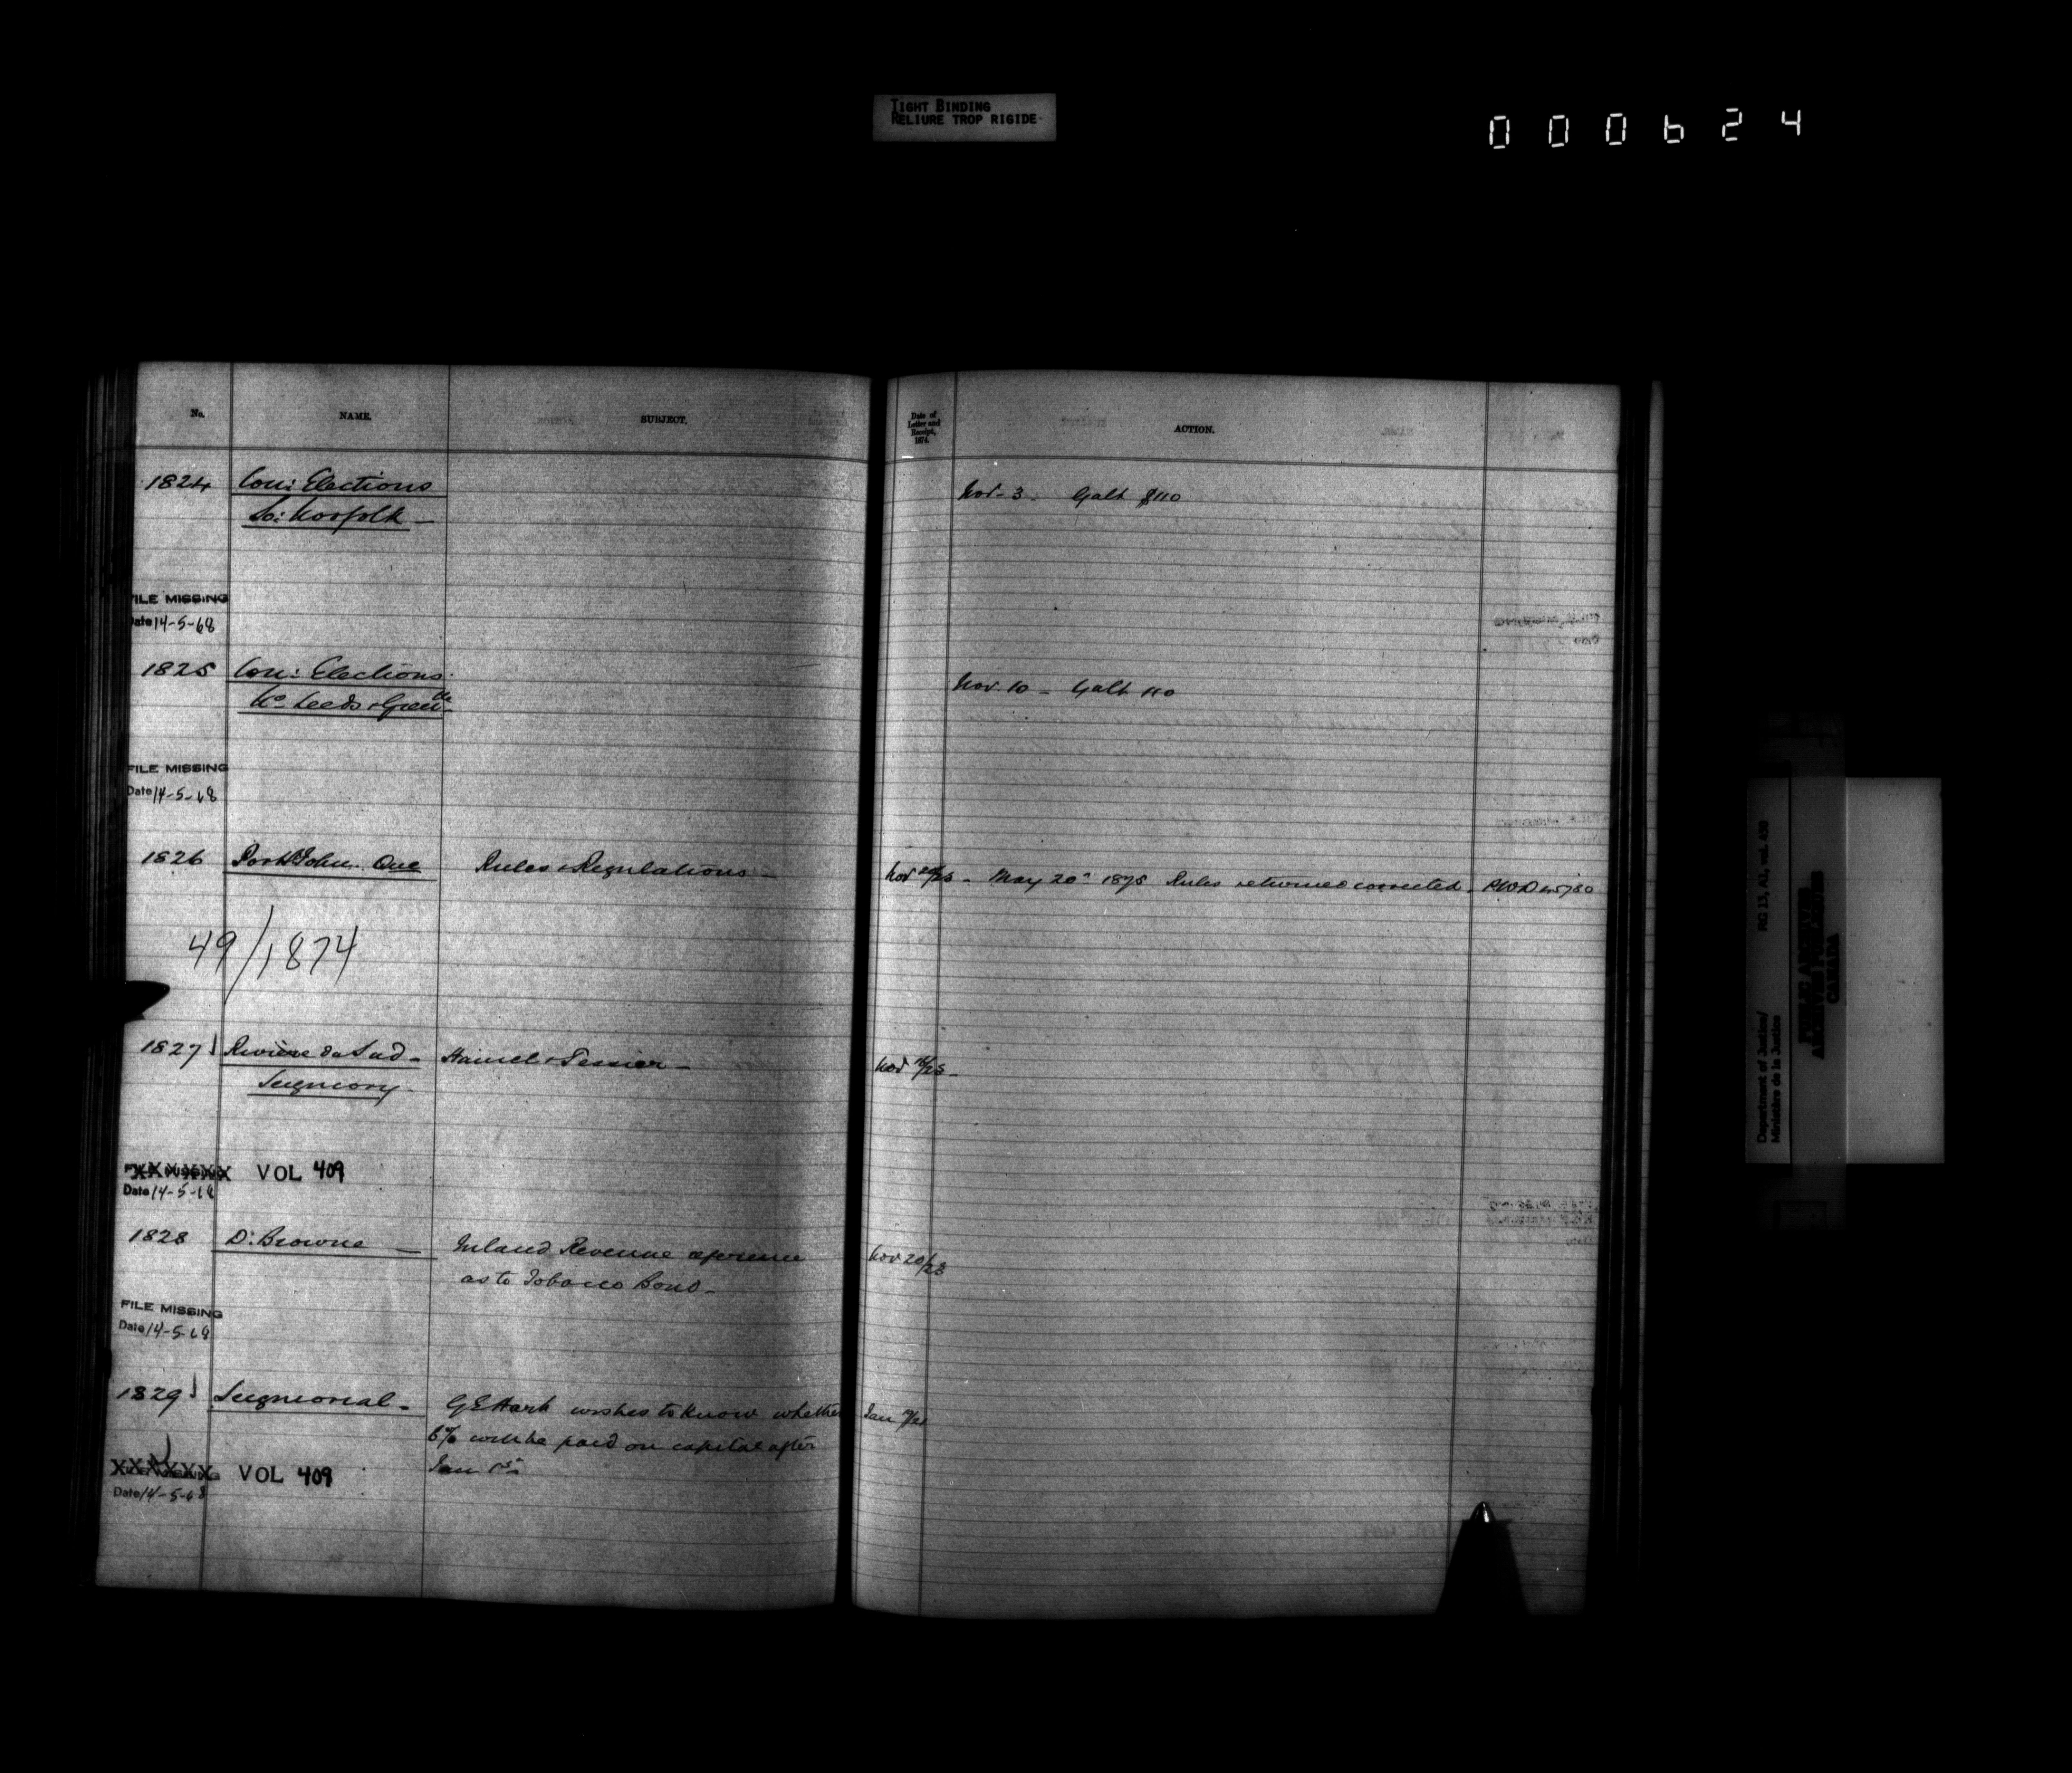 TIGHT BINDING
RELIURE TROP RIGIDE
000624
No. NAME. SUBJECT. Date of Letter and Receipt, 1874. ACTION.
1824 Con: Elections Nov. 3. Galt $110
So: Norfolk
FILE MISSING
Date 14-5-68
1825 Con: Elections Nov. 10 - Galt 110
No Leeds & Gren
FILE MISSING
Date 14-5-68
1826 Port St John. Que Rules & Regulations - Nov /23 - May 20 1875 Rules returned corrected.
49/1874
1827 Rivière du Sud - Hamel & Tessier - Nov /23 -
Seigniory
FILE MISSING VOL 409
Date 14-5-68
1828 D. Browne - Inland Revenue reference Nov 20/23
as to Tobacco Bond -
FILE MISSING
Date 14-5-68
1829 Seigniorial - G E Hart wishes to know whether Jan
6% will be paid on capital after
Jan 1st
XXXXXX VOL 409
Date 14-5-68
RG 13, A1, vol. 450
Department of Justice/
Ministère de la Justice
PUBLIC ARCHIVES
ARCHIVES PUBLIQUES
CANADA